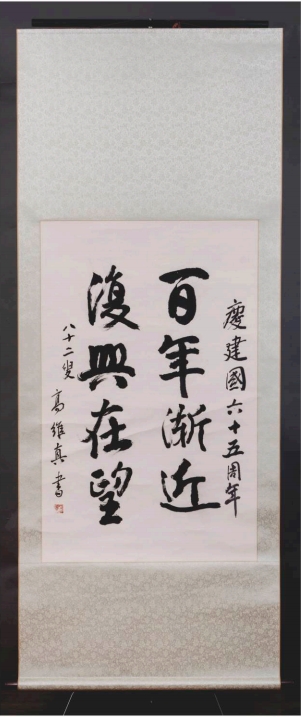 慶建國六十五周年
百年渐近
復興在望
八十二叟
高維真書